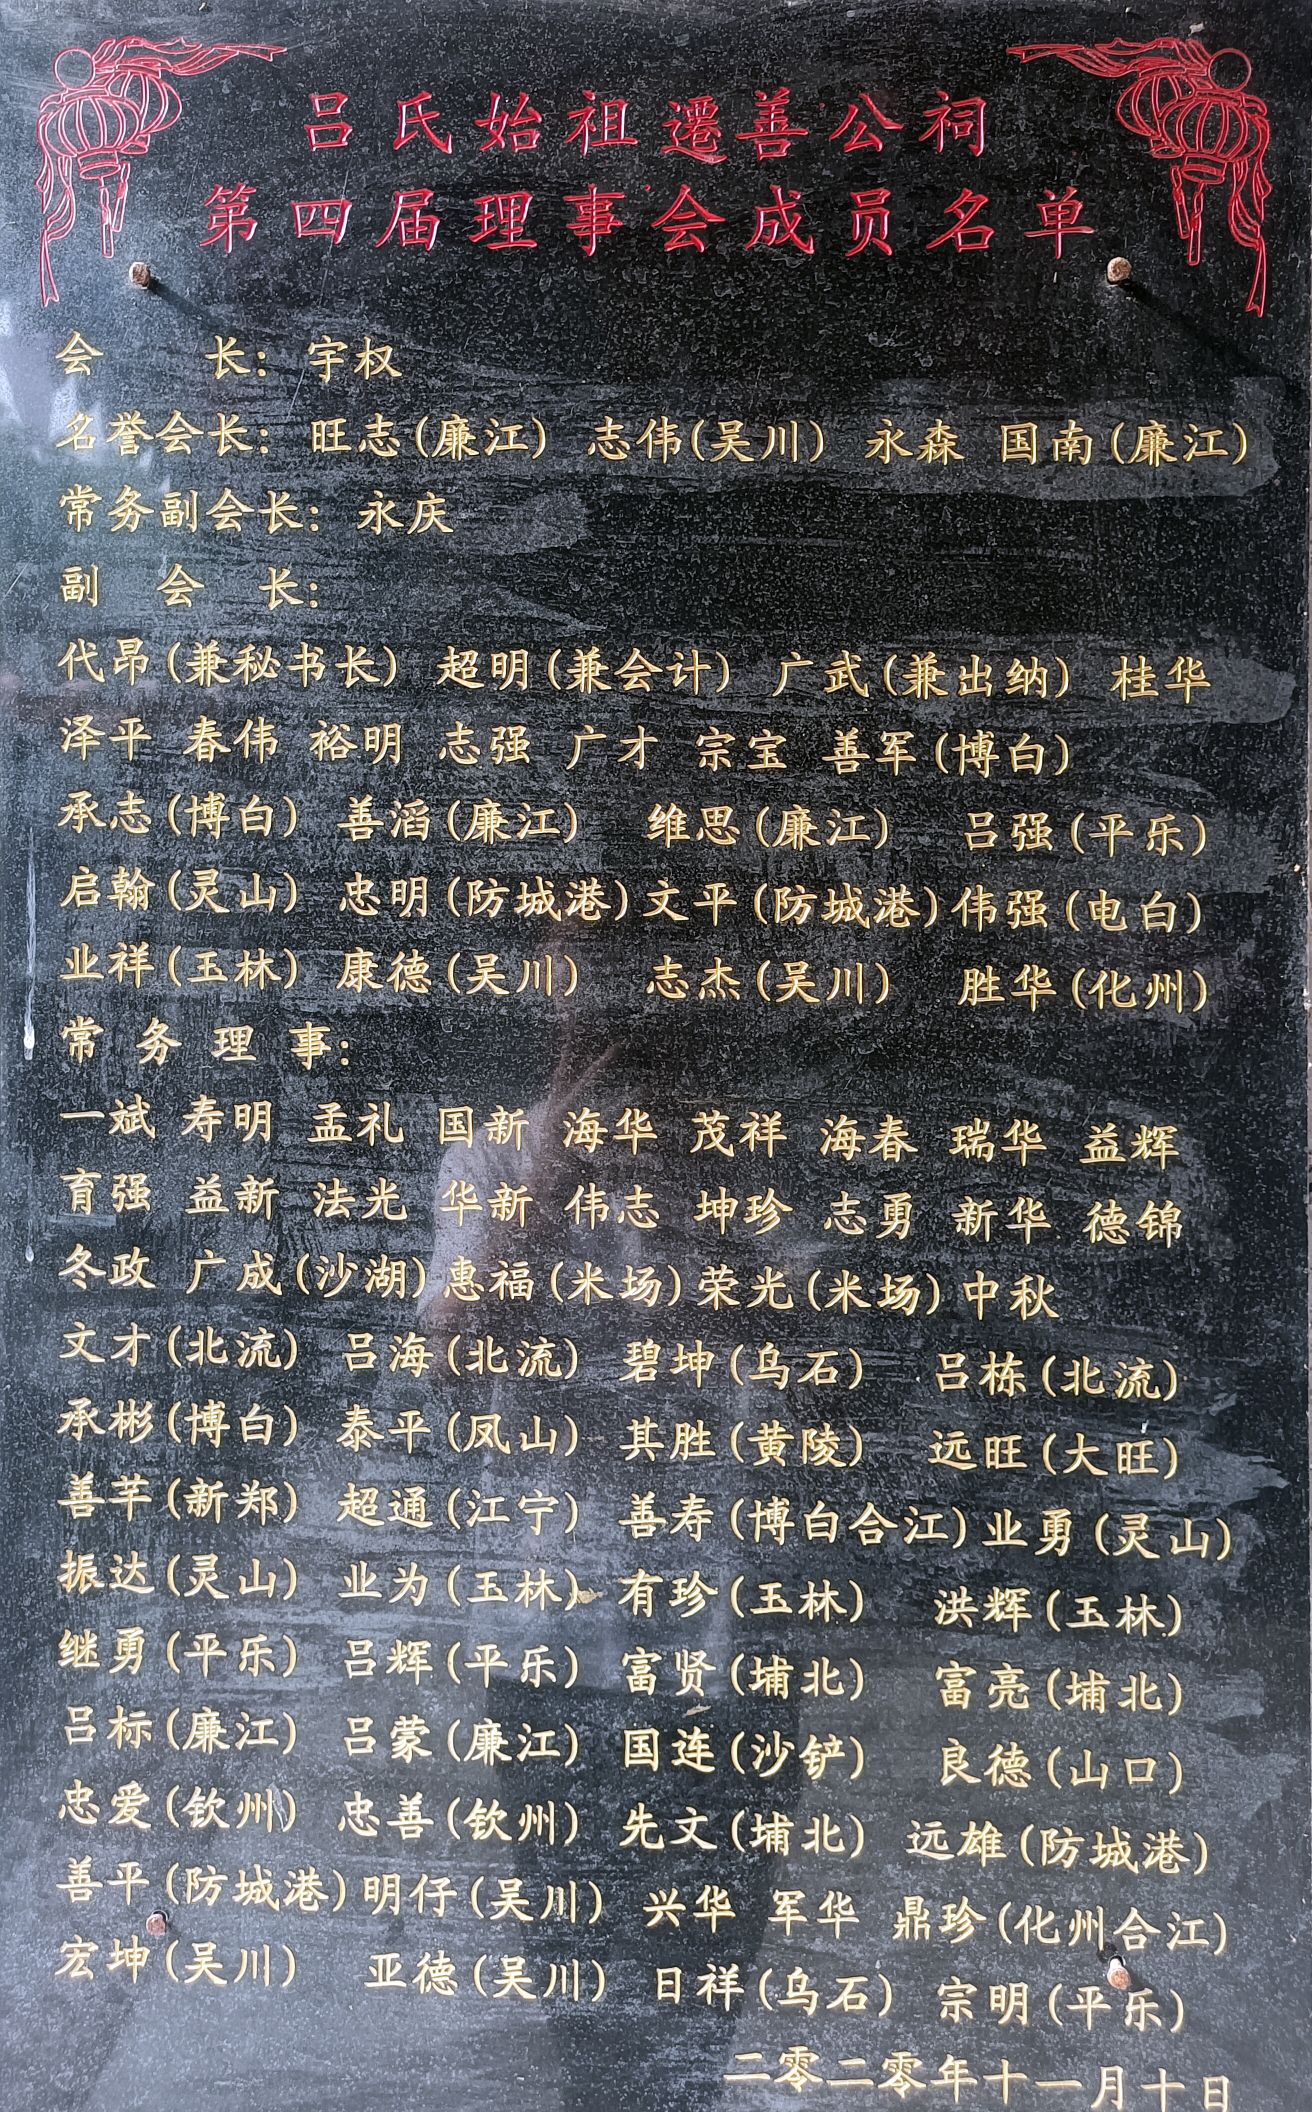 吕氏始祖遷善公祠
第四届理事会成员名单
会长：宇权
名誉会长：旺志(廉江) 志伟(吴川) 永森 国南(廉江)
常务副会长：永庆
副会长：
代昂(兼秘书长) 超明(兼会计) 广武(兼出纳) 桂华
泽平 春伟 裕明 志强 广才 宗宝 善军(博白)
承志(博白) 善滔(廉江) 维思(廉江) 吕强(平乐)
启翰(灵山) 忠明(防城港) 文平(防城港) 伟强(电白)
业祥(玉林) 康德(吴川) 志杰(吴川) 胜华(化州)
常务理事：
一斌 寿明 孟礼 国新 海华 茂祥 海春 瑞华 益辉
育强 益新 法光 华新 伟志 坤珍 志勇 新华 德锦
冬政 广成(沙湖) 惠福(米场) 荣光(米场) 中秋
文才(北流) 吕海(北流) 碧坤(乌石) 吕栋(北流)
承彬(博白) 泰平(凤山) 其胜(黄陵) 远旺(大旺)
善芊(新郑) 超通(江宁) 善寿(博白合江) 业勇(灵山)
振达(灵山) 业为(玉林) 有珍(玉林) 洪辉(玉林)
继勇(平乐) 吕辉(平乐) 富贤(埔北) 富亮(埔北)
吕标(廉江) 吕蒙(廉江) 国连(沙铲) 良德(山口)
忠爱(钦州) 忠善(钦州) 先文(埔北) 远雄(防城港)
善平(防城港) 明仔(吴川) 兴华 军华 鼎珍(化州合江)
宏坤(吴川) 亚德(吴川) 日祥(乌石) 宗明(平乐)
二零二零年十一月十日